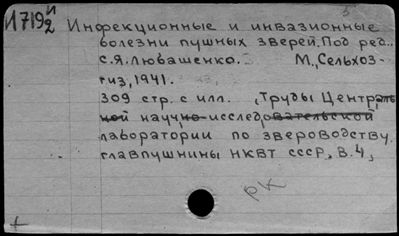 И7192И Инфекционные и инвазионные
болезни пушных зверей. Под ред.
С.Я. Любашенко. М., Сельхоз-
гиз, 1941.
309 стр. с илл. „Труды Централь
ной научно-исследовательской
лаборатории по звероводству
главпушнины НКВТ СССР, В.4,
РК